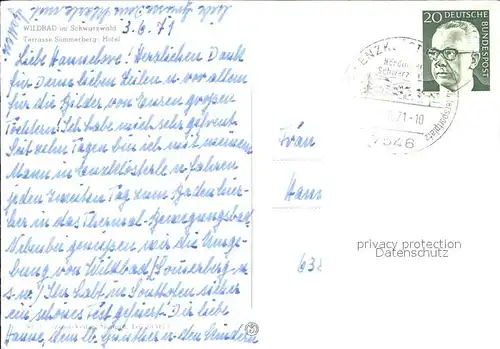 3.6.71
WILDBAD im Schwarzwald
Terrasse Sommerberg-Hotel
Liebe Hannelore! Herzlichen Dank
für Deine lieben Zeilen u. vor allem
für die Bilder von Euren großen
Töchtern! Ich habe mich sehr gefreut
Seit zehn Tagen bin ich mit meinem
Mann in Enzklösterle u. fahren
jeden zweiten Tag zum Baden hier-
her in das Thermal-Bewegungsbad
Nebenbei genießen wir die Umge-
bung von Wildbad (Sommerberg u.
s.w.) Ihr habt in Sonthofen sicher
ein schönes Fest gefeiert! Dir liebe
Hanne, dem lb. Günther u. den Kindern
20
DEUTSCHE
BUNDESPOST
71-10
7546
Frau
Hann
638
privacy protection
Datenschutz